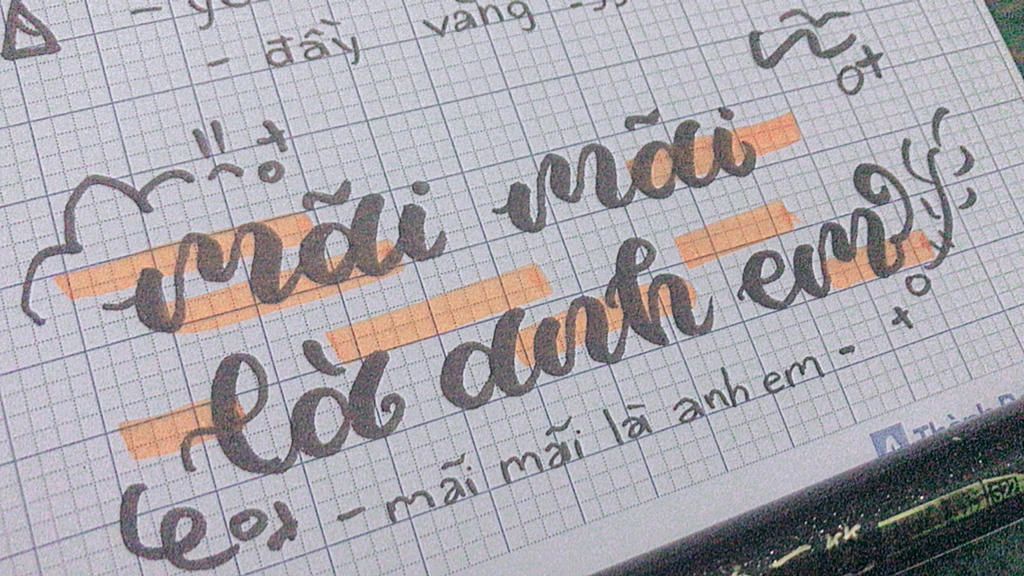 - đầy vàng
mãi mãi
là anh em
- mãi mãi là anh em -